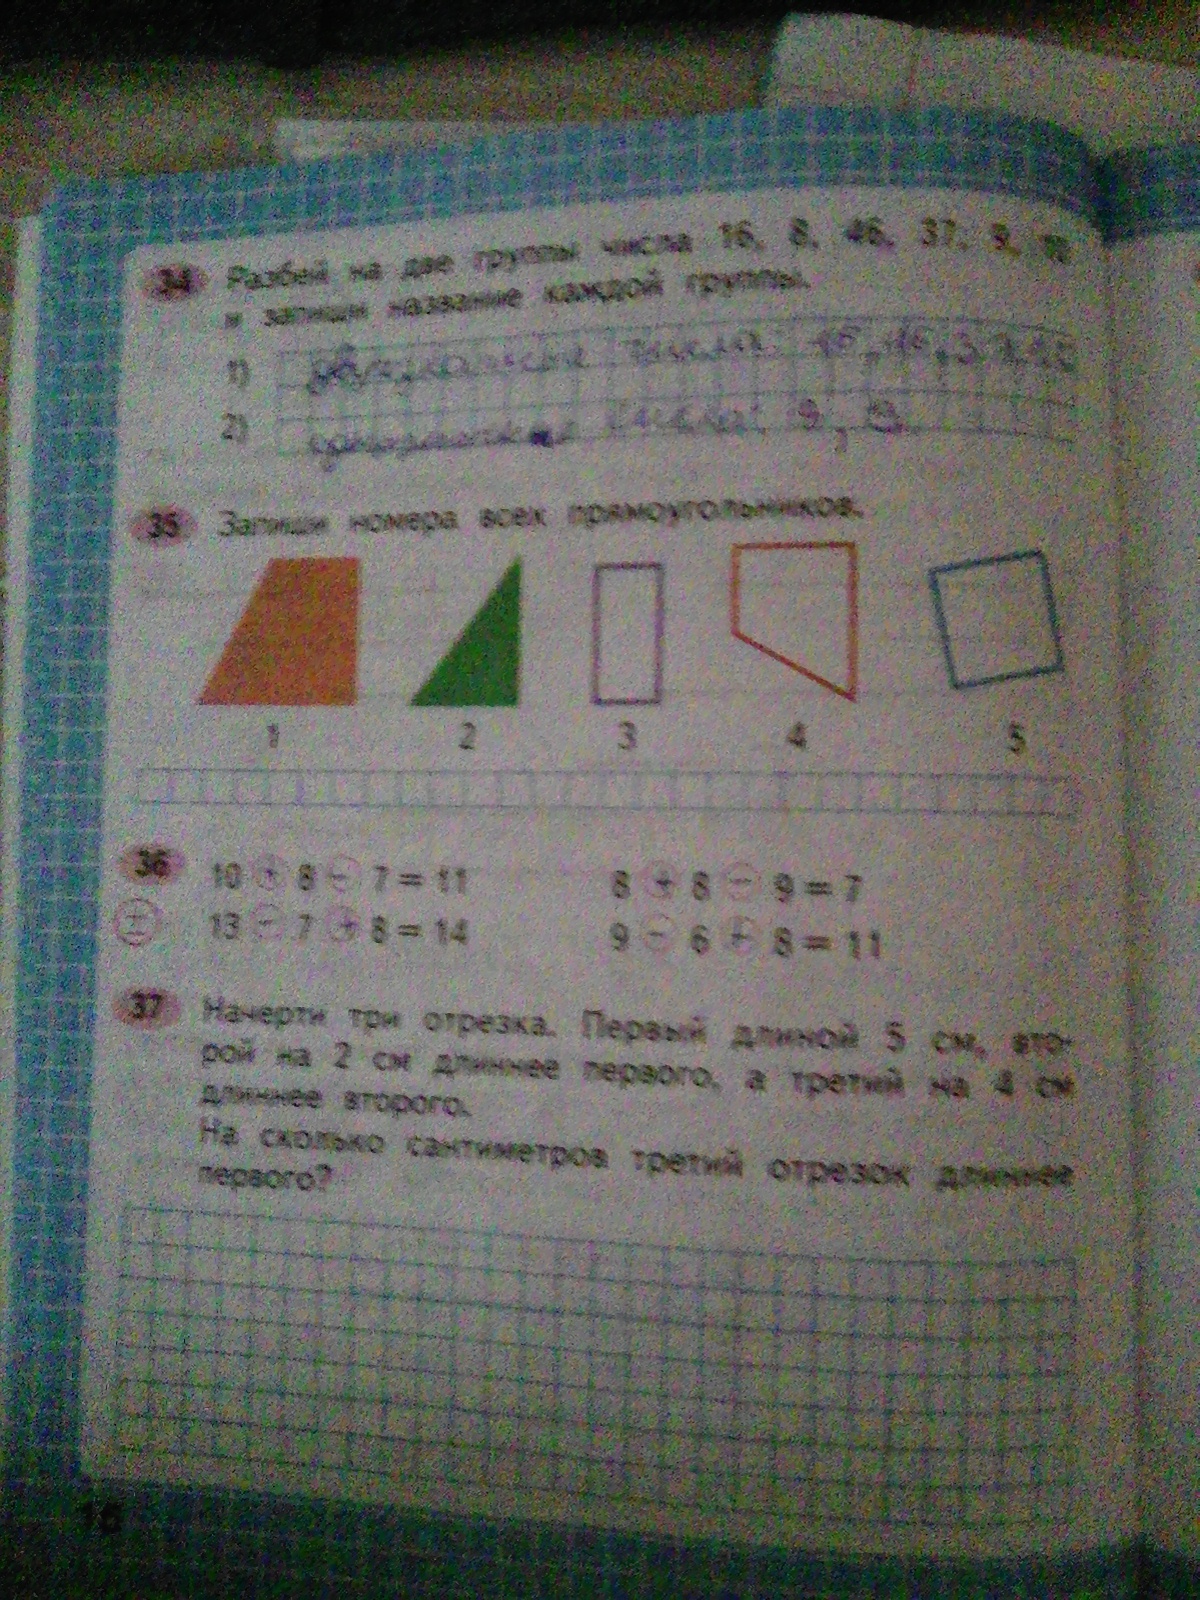 34 Разбей на две группы числа 16, 8, 46, 37, 9,
и запиши название каждой группы.
1) двузначные числа: 16, 46, 37,
2) однозначные числа: 9, 8.
35 Запиши номера всех прямоугольников.
1 2 3 4 5
36 10 + 8 − 7 = 11 8 + 8 − 9 = 7
± 13 − 7 + 8 = 14 9 − 6 + 8 = 11
37 Начерти три отрезка. Первый длиной 5 см, вто-
рой на 2 см длиннее первого, а третий на 4 см
длиннее второго.
На сколько сантиметров третий отрезок длиннее
первого?